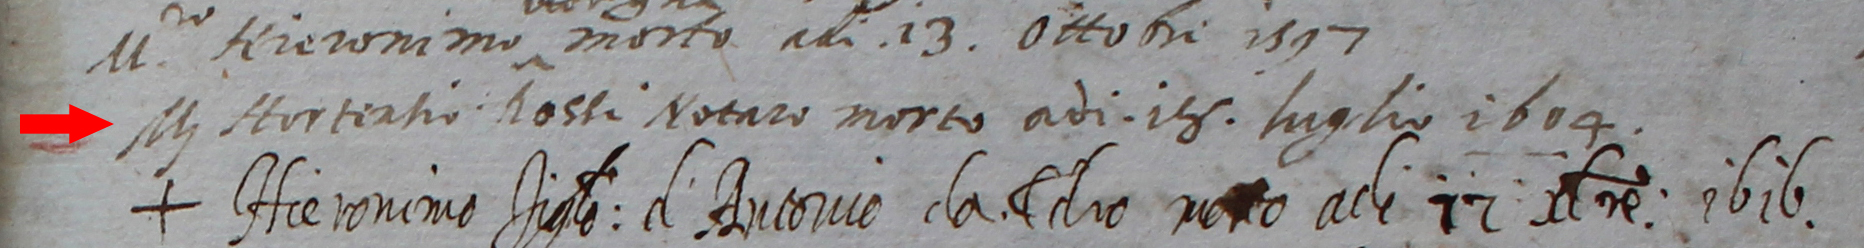 M.ro Hieronimo morto adi .13. Ottobri 1597
Mr Hortentio Rossi Notaro morto adi. 15. luglio 1604.
+ Hieronimo figlo: d Antonio da morto adi 12 Xbre: 1616.